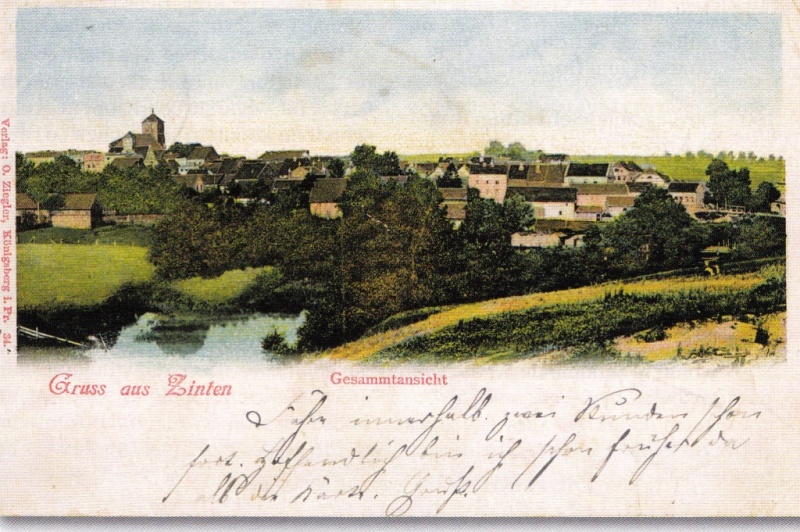 Verlag: O. Ziegler, Königsberg i. Pr. 34.
Gruss aus Zinten
Gesammtansicht
Fahr innerhalb zwei Stunden schon
fort. Hoffendlich bin ich schon früher da
als die Karte. Gruß.